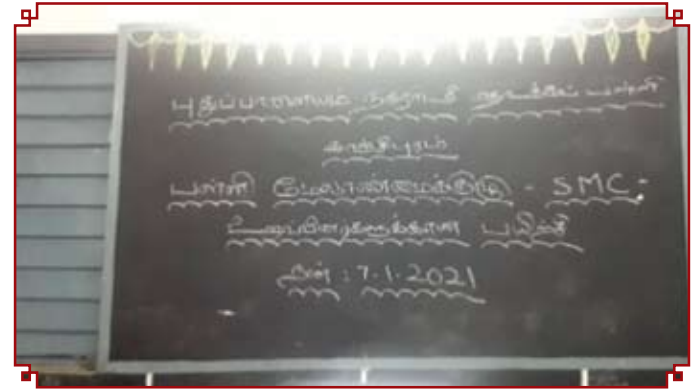 புதுப்பாளையம் நகராட்சி தொடக்கப் பள்ளி
காஞ்சிபுரம்
பள்ளி மேலாண்மைக்குழு - SMC
உறுப்பினர்களுக்கான பயிற்சி
நாள் : 7.1.2021